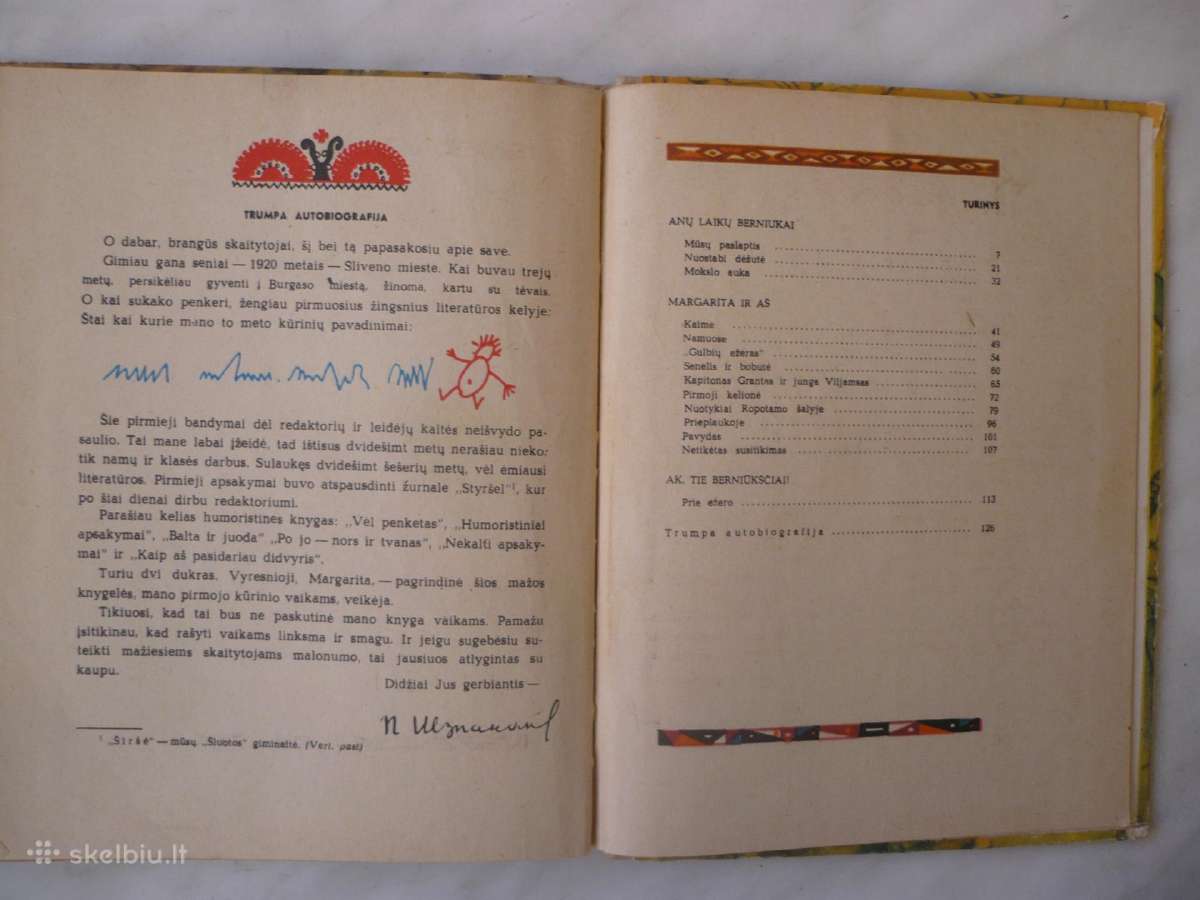 TRUMPA AUTOBIOGRAFIJA
O dabar, brangūs skaitytojai, šį bei tą papasakosiu apie save.
Gimiau gana seniai — 1920 metais — Sliveno mieste. Kai buvau trejų
metų, persikėliau gyventi į Burgaso miestą, žinoma, kartu su tėvais.
O kai sukako penkeri, žengiau pirmuosius žingsnius literatūros kelyje:
Štai kai kurie mano to meto kūrinių pavadinimai:
Šie pirmieji bandymai dėl redaktorių ir leidėjų kaltės neišvydo pa-
saulio. Tai mane labai įžeidė, tad ištisus dvidešimt metų nerašiau nieko,
tik namų ir klasės darbus. Sulaukęs dvidešimt šešerių metų, vėl ėmiausi
literatūros. Pirmieji apsakymai buvo atspausdinti žurnale „Styršel"¹, kur
po šiai dienai dirbu redaktoriumi.
Parašiau kelias humoristines knygas: „Vėl penketas", „Humoristiniai
apsakymai", „Balta ir juoda" „Po jo — nors ir tvanas", „Nekalti apsaky-
mai" ir „Kaip aš pasidariau didvyris".
Turiu dvi dukras. Vyresnioji, Margarita, — pagrindinė šios mažos
knygelės, mano pirmojo kūrinio vaikams, veikėja.
Tikiuosi, kad tai bus ne paskutinė mano knyga vaikams. Pamažu
įsitikinau, kad rašyti vaikams linksma ir smagu. Ir jeigu sugebėsiu su-
teikti mažiesiems skaitytojams malonumo, tai jausiuos atlygintas su
kaupu.
Didžiai Jus gerbiantis —
¹ „Širšė" — mūsų „Šluotos" giminaitė. (Vert. past)
TURINYS
ANŲ LAIKŲ BERNIUKAI
Mūsų paslaptis 7
Nuostabi dėžutė 21
Mokslo auka 32
MARGARITA IR AŠ
Kaime 41
Namuose 49
„Gulbių ežeras" 54
Senelis ir bobutė 60
Kapitonas Grantas ir junga Viljamsas 65
Pirmoji kelionė 72
Nuotykiai Ropotamo šalyje 79
Prieplaukoje 96
Pavydas 101
Netikėtas susitikimas 107
AK, TIE BERNIŪKŠČIAI!
Prie ežero 113
Trumpa autobiografija 126
skelbiu.lt